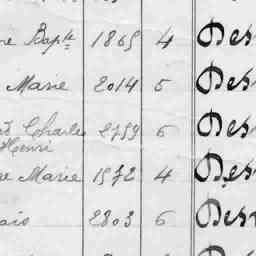 re Bapte 1869 4 Des
Marie 2014 5 Des
Charles 2759 6 Des
Henri
e Marie 1572 4 Des
ais 2803 6 Des